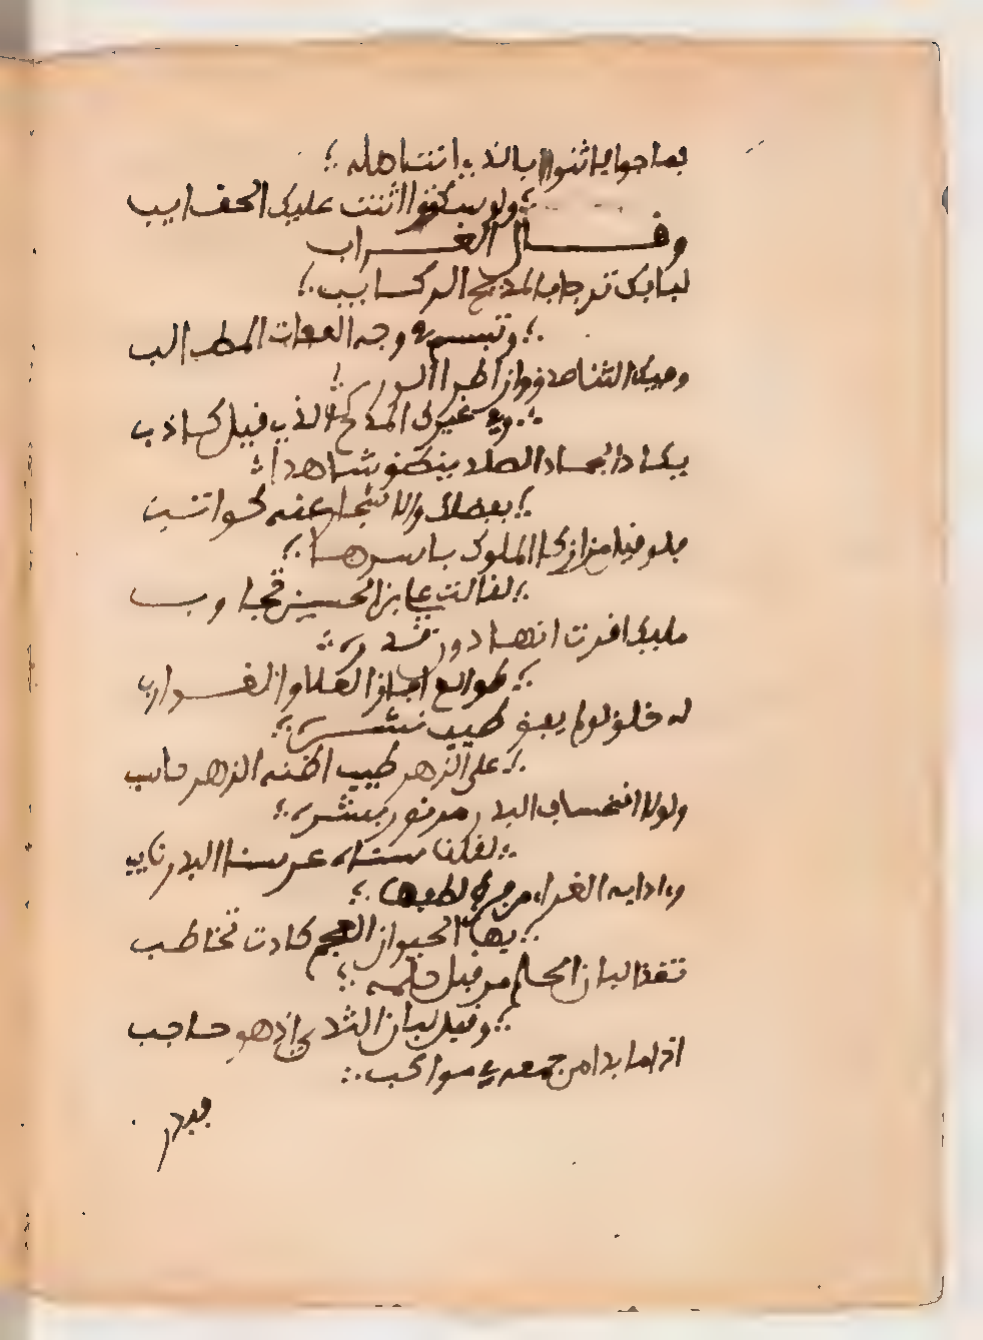 فعاجوا فاثنوا بالذي انت اهله
ولو سكتوا اثنت عليك الحقايب
وقال الغراب
لبابك تزجا بالمديح الركايب
وتبسم في وجه العفات المطالب
وفيك الثنا صدق وان اطرا الورى
وفي غيرك المدح الذي قيل كاذب
يكاد الجماد الصلد ينطق شاهدا
بفضلك والاشجار عنه كواتب
فلو قيل من ازكا الملوك باسرها
لقالت علي بن الحسين تجاوب
مليك اقرت انها دون قدره
طوالع افلاك العلا والغوارب
له خلق لو لم يفق طيب نشره
على الزهر طيب الخنه الزهر عايب
ولولا انخساف البدر من نور بشره
لقلنا سناه عن سنا البدر نايب
واداب الغراء من فرط لطفها
بها الحيوان العجم كادت تخاطب
تغذا لبان الحلم من قبل حلمه
وقبل لبان الثدي اذ هو حاجب
اذا ما بدا من جمعه في مواكب